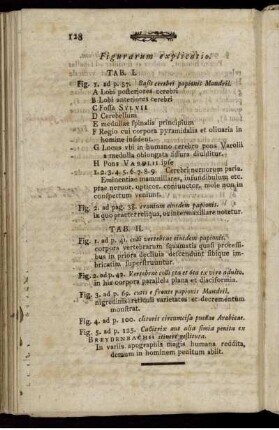 128
Figurarum explicatio.
TAB. I.
Fig. 1. ad p. 37. Basis cerebri papionis Mandril.
A Lobi posteriores cerebri
B Lobi anteriores cerebri
C Fossa SYLVII
D Cerebellum
E medullae spinalis principium
F Regio cui corpora pyramidalia et olivaria in
homine insident.
G Locus ubi in humano cerebro pons Varolii
a medulla oblongata sissura dividitur.
H Pons VAROLII ipse
1. 2. 3. 4. 5. 6. 7. 8. 9. Cerebri nervorum paria.
Eminentiae mammillares, infundibulum etc.
prae nervor. opticor. coniunctor. mole non in
conspectum veniunt.
Fig. 2. ad pag. 37. cranium eiusdem papionis.
in quo praeter reliqua, os intermaxillare notetur.
TAB. II.
Fig. 1. ad p. 41. colli vertebrae eiusdem papionis.
corpora vertebrarum squamosis quasi processi-
bus in priora declivia descendunt sibique im-
bricatim superstruuntur.
Fig. 2. ad p. 42. Vertebrae colli 5ta et 6ta ex viro adulto.
in his corpora parallela plana et disciformia.
Fig. 3. ad p. 69. cutis e fronte papionis Mandril.
nigredinis retis varietatem et decrementum
monstrat.
Fig. 4. ad p. 100. clitoris circumcisa puellae Arabicae.
Fig. 5. ad p. 125.
BREYDENBACHII itinere
In variis apographis magis humana reddita,
demum in hominem penitum abiit.